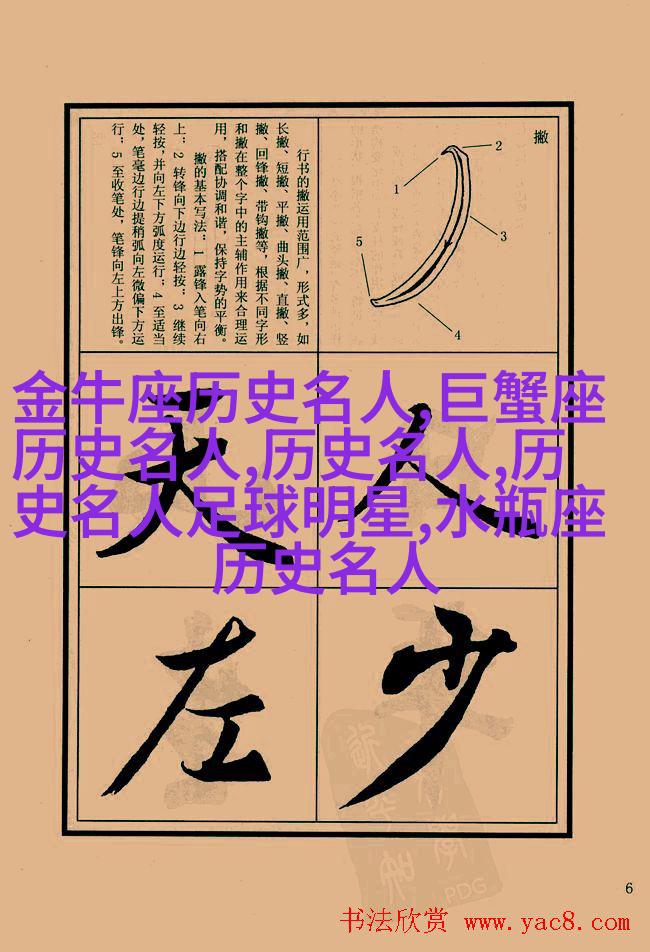 撇
1
2
3
4
5
行书的撇运用范围广，形式多，如
长撇、短撇、平撇、曲头撇、直撇、竖
撇、回锋撇、带钩撇等，根据不同字形
和撇在整个字中的主辅作用来合理运
用，搭配协调和谐，保持字势的平衡。
撇的基本写法：1 露锋入笔向右
上；2 转锋向下边行边轻按；3 继续
轻按，并向左下方弧度运行；4 至适当
处，笔毫边行边提稍弧向左微偏下方运
行；5 至收笔处，笔锋向左上方出锋。
金牛座历史名人,巨蟹座
历史名人,历史名人,历
史名人足球明星,水瓶座
历史名人
人
天
少
左
PDG
6
书法欣赏 www.yac8.com